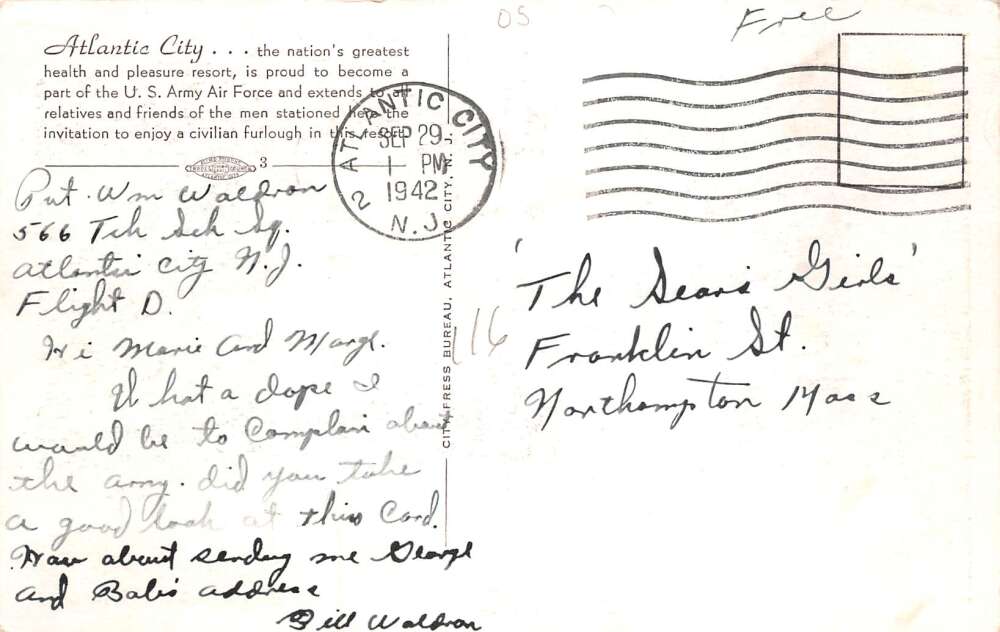 05
Free
Atlantic City . . . the nation's greatest
health and pleasure resort, is proud to become a
part of the U. S. Army Air Force and extends to all
relatives and friends of the men stationed here the
invitation to enjoy a civilian furlough in this resort.
3
ATLANTIC CITY
2
SEP 29
1 PM
1942
N.J.
Pvt. Wm Waldron
566 Tch Sch Sq.
Atlantic City N.J.
Flight D.
Hi Marie and Marge.
What a dope I
would be to complain about
the army. did you take
a good look at this Card.
How about sending me George
and Bab's address
Bill Waldron
CITY PRESS BUREAU, ATLANTIC CITY, N. J.
116
'The Sears Girls'
Franklin St.
Northampton Mass